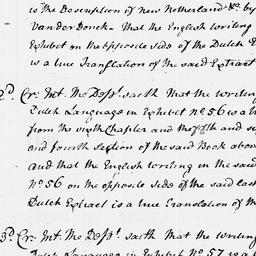 to the Description of new Netherland &c by
Van der Donck - That the English writing
Exhibet on the opposite side of the Dutch E
is a true Translation of the said Extract
2d Cr: Int. The Dept. saith That the writing
Dutch Language in Exhibet No 56 is a tr
from the Chapter and the fifth and
and fourth Section of the said Book above
and that the English writing in the said
No 56 on the opposite side of the said last
Dutch Extract is a true translation of th
3d Cr: Int. The Dept. saith That the writing
Dutch Language in Exhibet No 57 is a